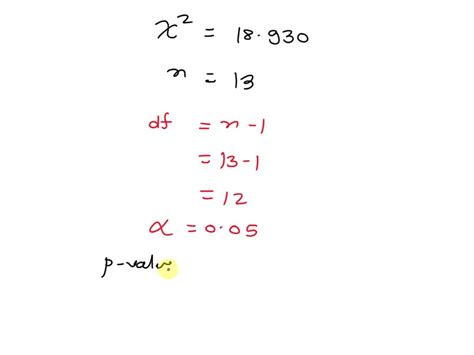 x² = 18.930
n = 13
df = n-1
= 13-1
= 12
α = 0.05
p-value